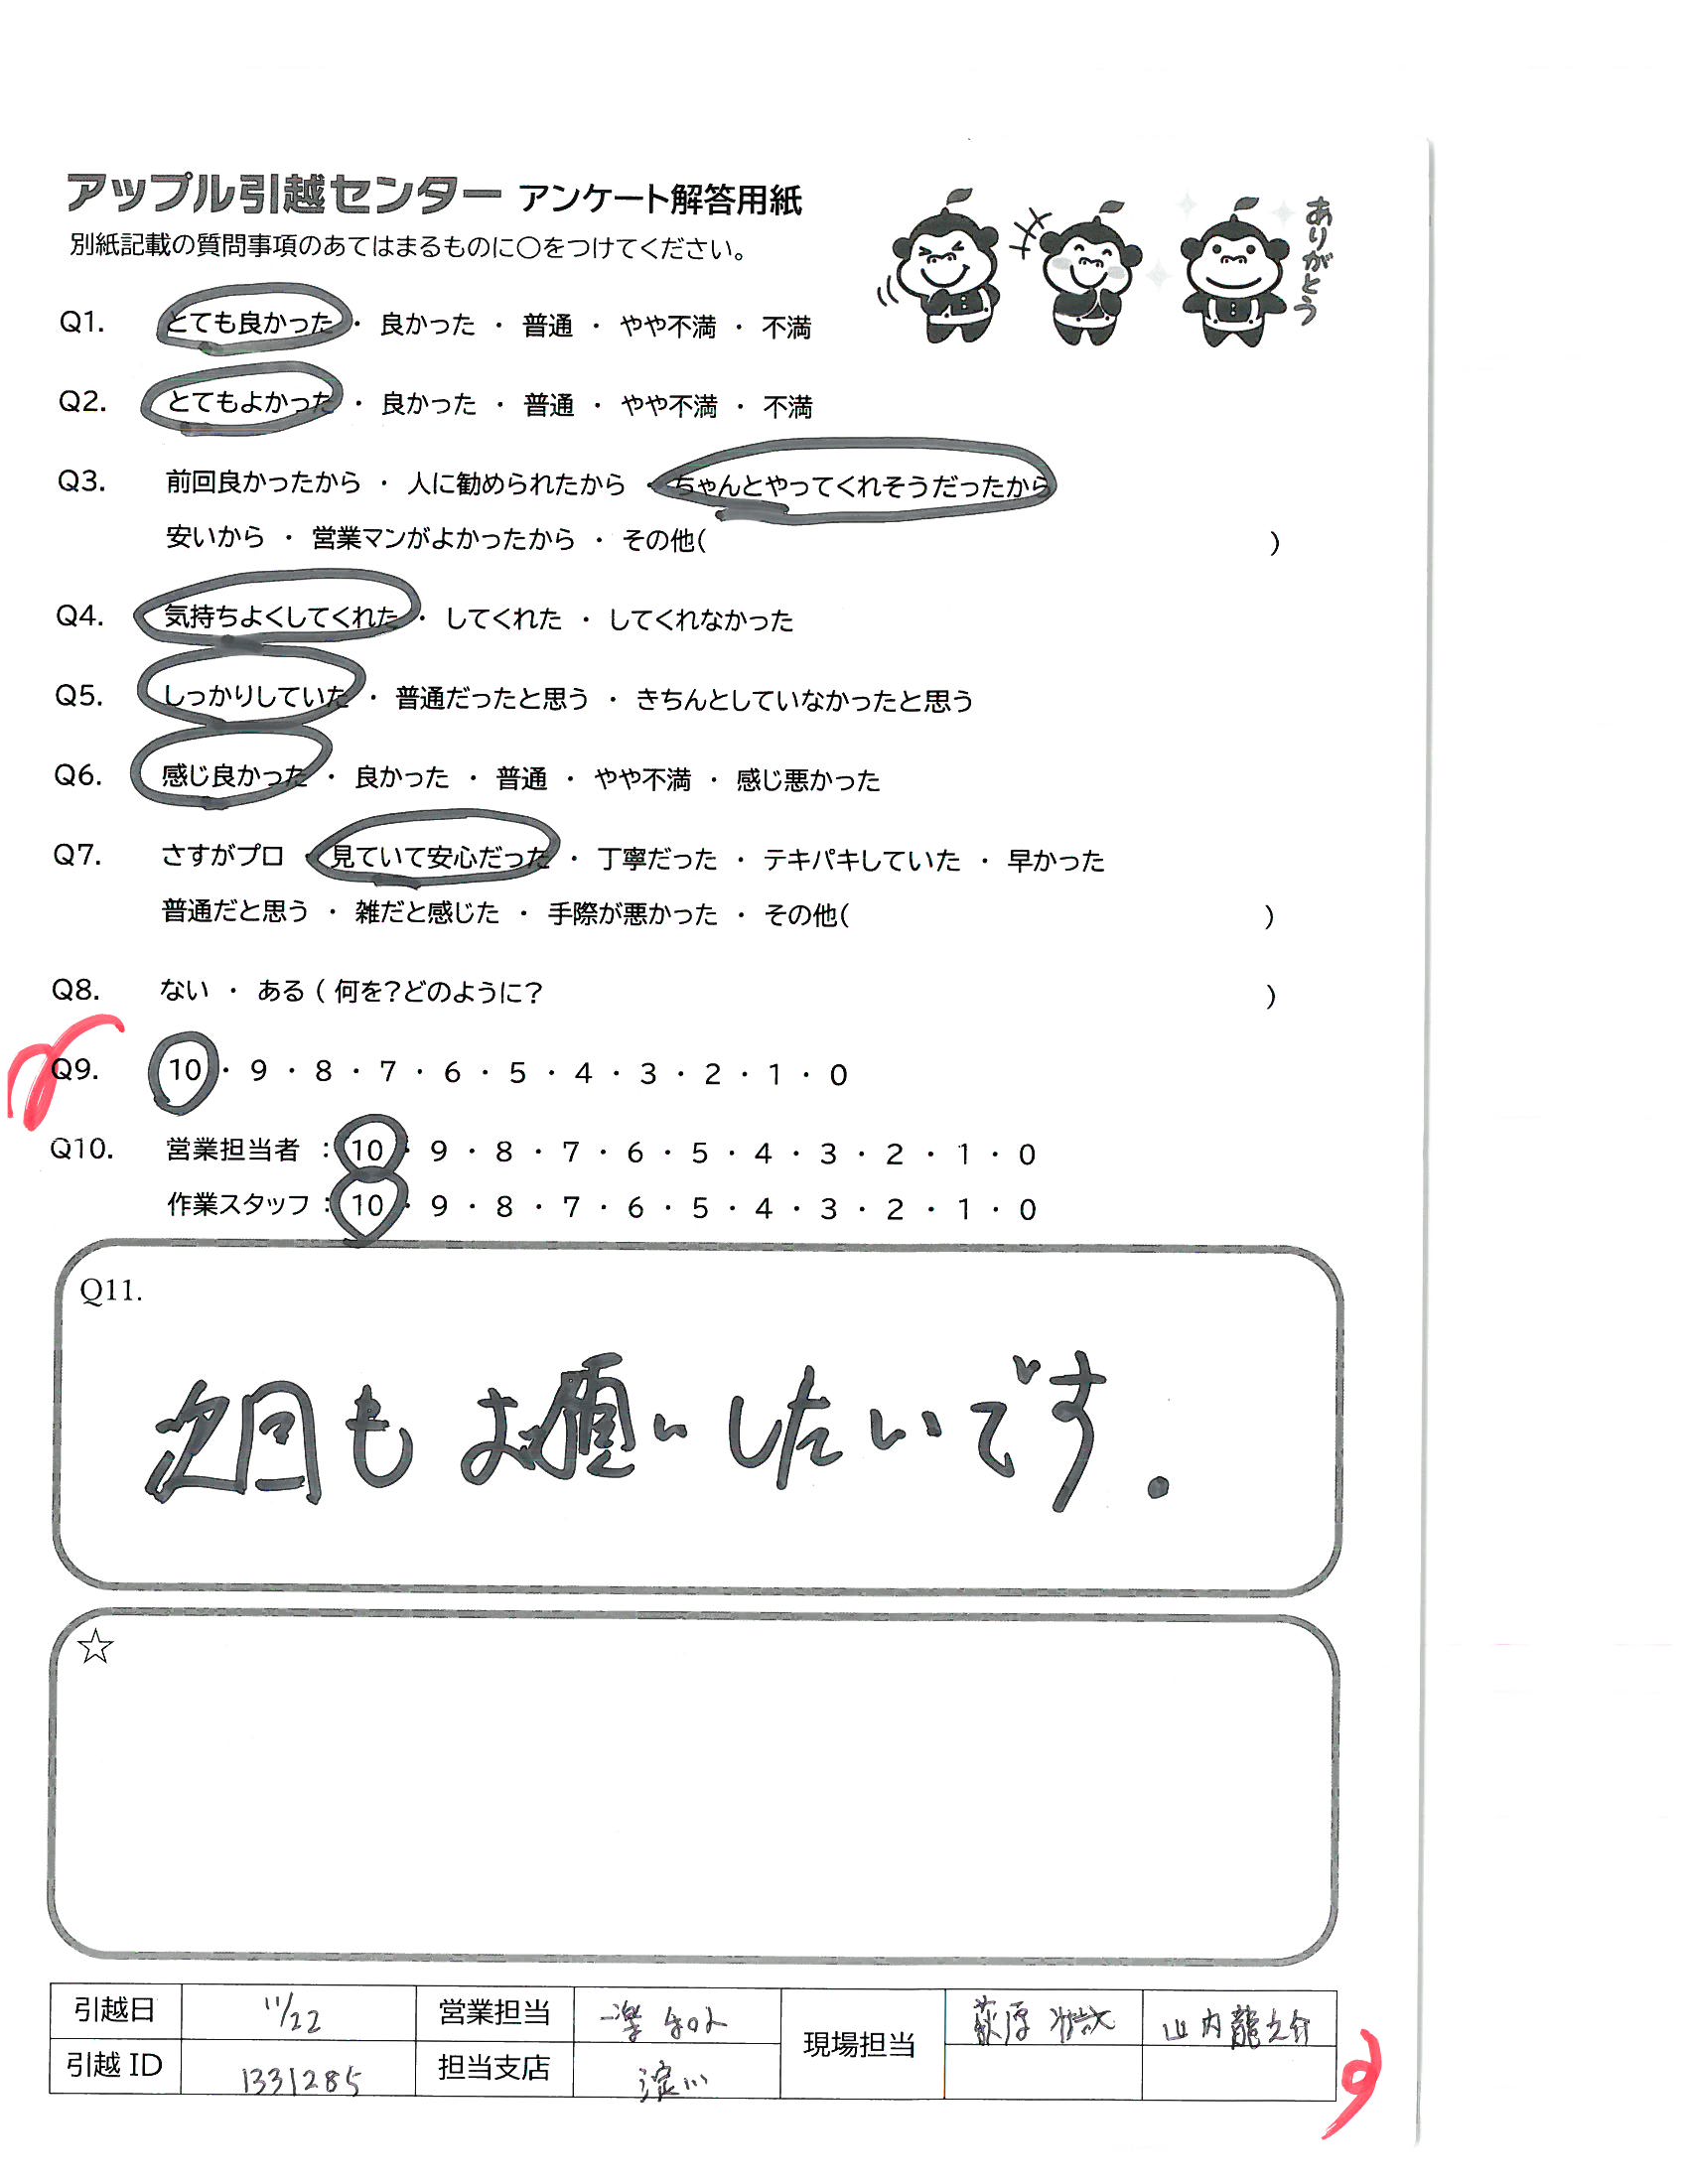 アップル引越センター アンケート解答用紙
ありがとう
別紙記載の質問事項のあてはまるものに〇をつけてください。
Q1. とても良かった ・ 良かった ・ 普通 ・ やや不満 ・ 不満
Q2. とてもよかった ・ 良かった ・ 普通 ・ やや不満 ・ 不満
Q3. 前回良かったから ・ 人に勧められたから ・ ちゃんとやってくれそうだったから
安いから ・ 営業マンがよかったから ・ その他( )
Q4. 気持ちよくしてくれた ・ してくれた ・ してくれなかった
Q5. しっかりしていた ・ 普通だったと思う ・ きちんとしていなかったと思う
Q6. 感じ良かった ・ 良かった ・ 普通 ・ やや不満 ・ 感じ悪かった
Q7. さすがプロ ・ 見ていて安心だった ・ 丁寧だった ・ テキパキしていた ・ 早かった
普通だと思う ・ 雑だと感じた ・ 手際が悪かった ・ その他( )
Q8. ない ・ ある ( 何を?どのように? )
Q9. 10 ・ 9 ・ 8 ・ 7 ・ 6 ・ 5 ・ 4 ・ 3 ・ 2 ・ 1 ・ 0
Q10. 営業担当者 : 10 ・ 9 ・ 8 ・ 7 ・ 6 ・ 5 ・ 4 ・ 3 ・ 2 ・ 1 ・ 0
作業スタッフ : 10 ・ 9 ・ 8 ・ 7 ・ 6 ・ 5 ・ 4 ・ 3 ・ 2 ・ 1 ・ 0
Q11.
次回もお願いしたいです.
☆
引越日 11/22 営業担当 現場担当 萩原 山内龍之介
引越 ID 1331285 担当支店 淀川